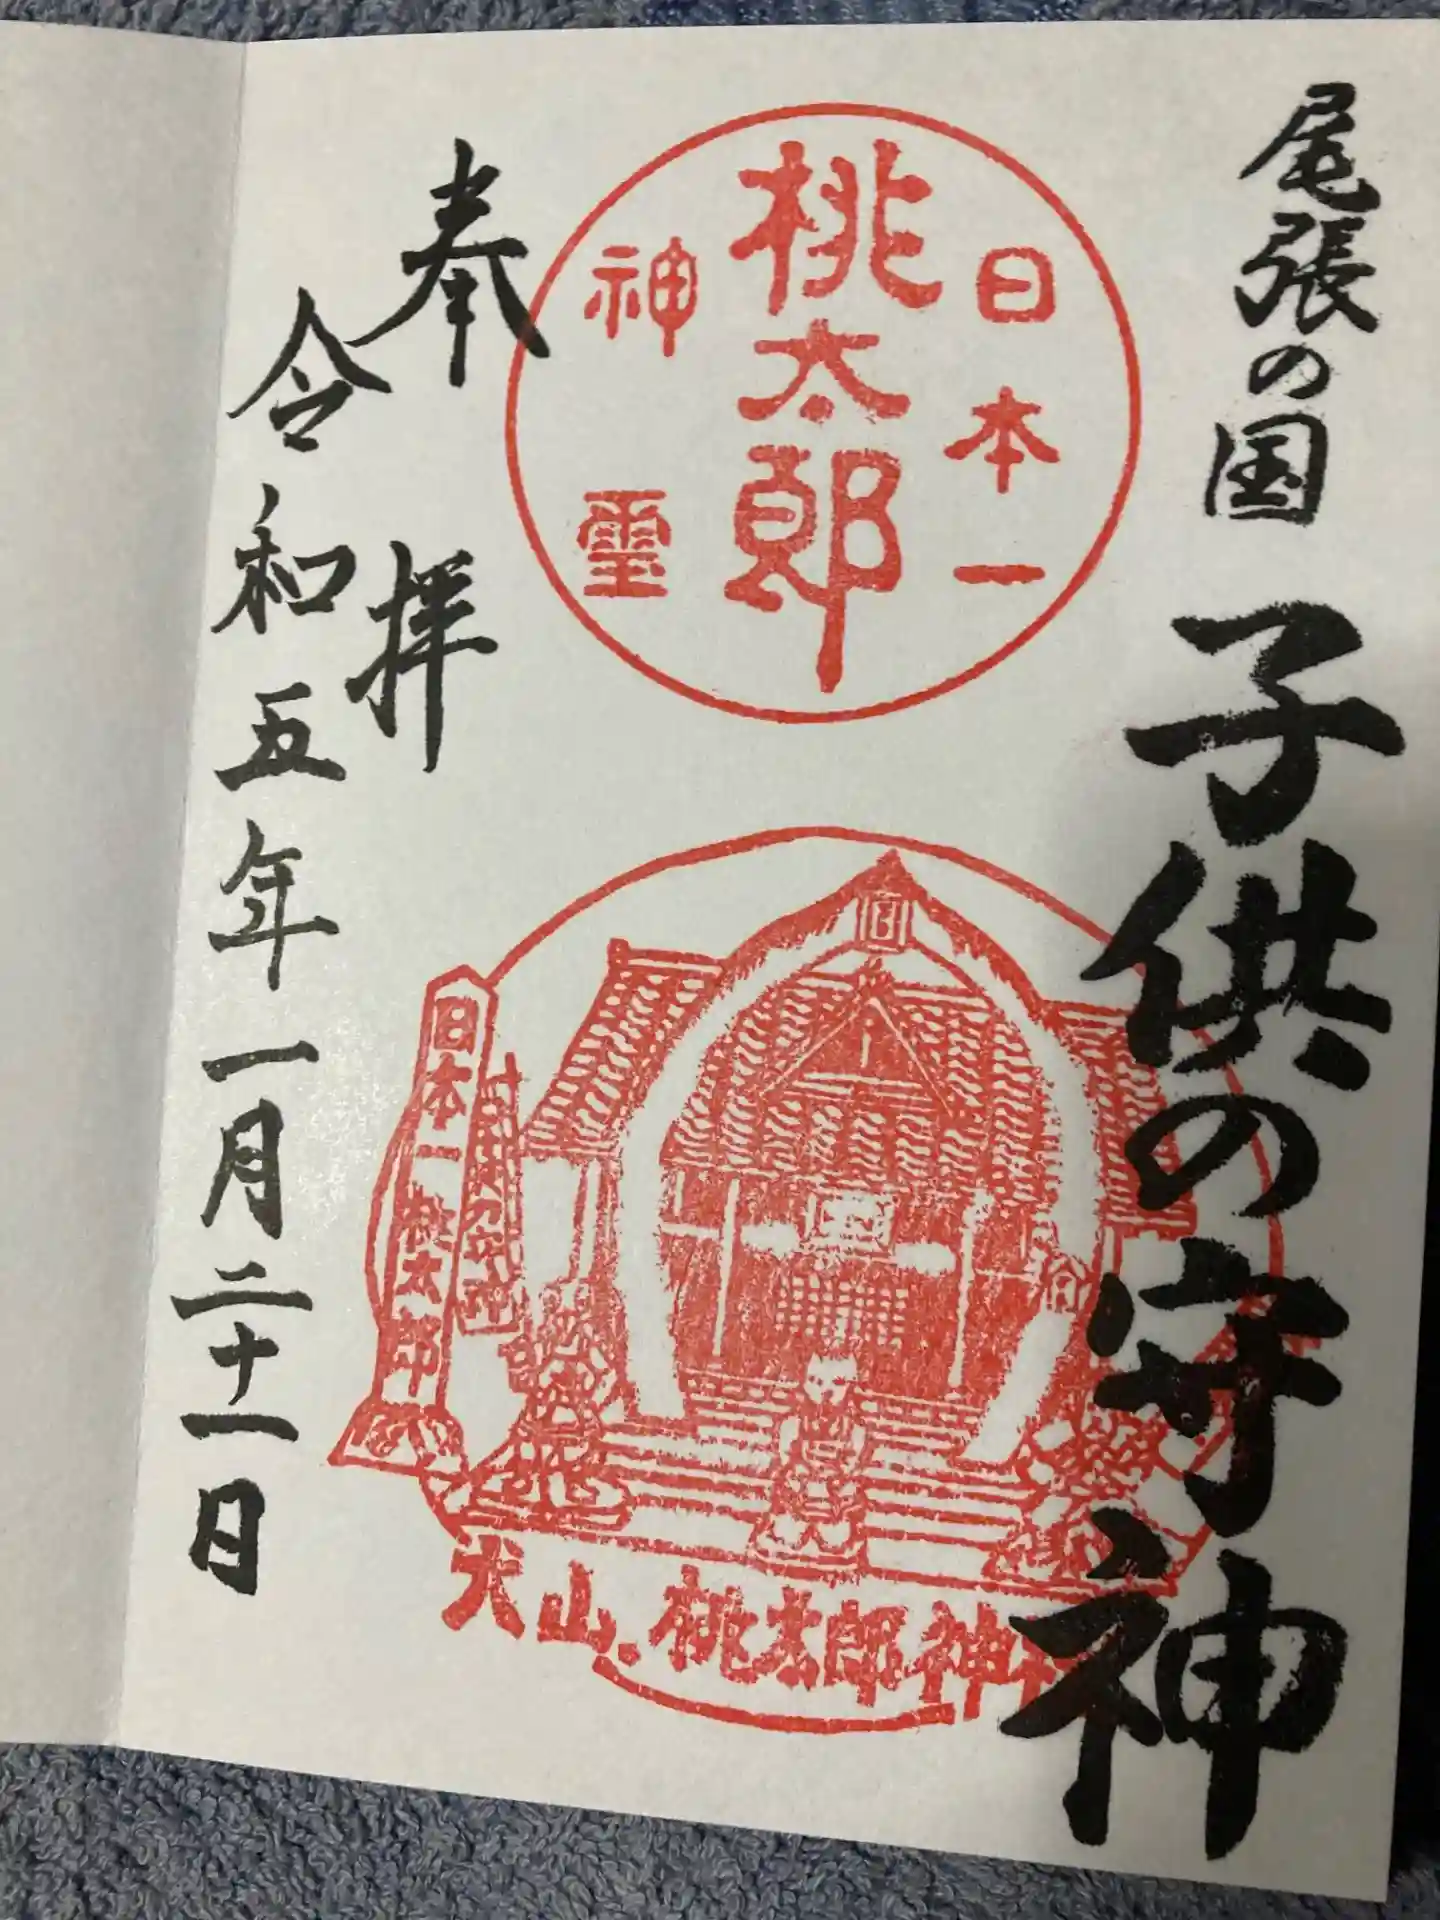 尾張の国
子供の守神
日本一
桃太郎
神霊
奉拝
令和五年一月二十一日
日本一桃太郎
犬山.桃太郎神社